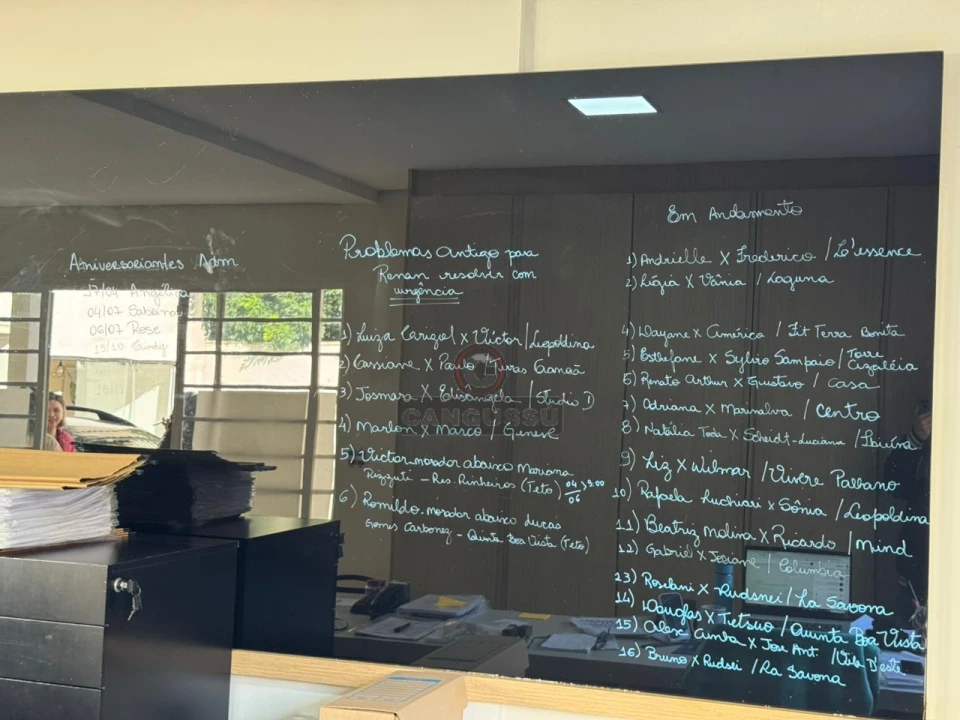 Aniversariantes Adm
17/04 Angélica
04/07 Sabrina
06/07 Rose
15/10
Problemas antigo para
Renan resolver com
urgência
1) Luiza Carigel x Victor / Leopoldina
2) Cassiane x Paulo /
3) Josmara x Elisangela / Studio D
4) Marlon x Marco / Geneve
5) Victor morador abaixo Mariana
Rizzuti - Res. Pinheiros (Teto) 04/06 > 9:00
6) Romildo morador abaixo Lucas
Gomes - Quinta Boa Vista (Teto)
Em Andamento
1) Andrielle x Frederico / L'essence
2) Lígia x Vânia / Laguna
4) Dayane x Américo / Fit Terra Bonita
5) Esthefane x Sylvio Sampaio / Torre
6) Renato Arthur x Gustavo / Casa
7) Adriana x Marinalva / Centro
8) Natália x Scheidt-Luciana /
9) Liz x Wilmar / Vivere Palhano
10) Rafaela Luchiari x Sônia / Leopoldina
11) Beatriz Molina x Ricardo / Mind
12) Gabriel x Josiane / Columbia
13) Roselani x Rudsnei / La Savona
14) Douglas x Tetsuo / Quinta Boa Vista
15) Alex x Jose Ant / Villa D'este
16) Bruno x / La Savona
CANGUSSU